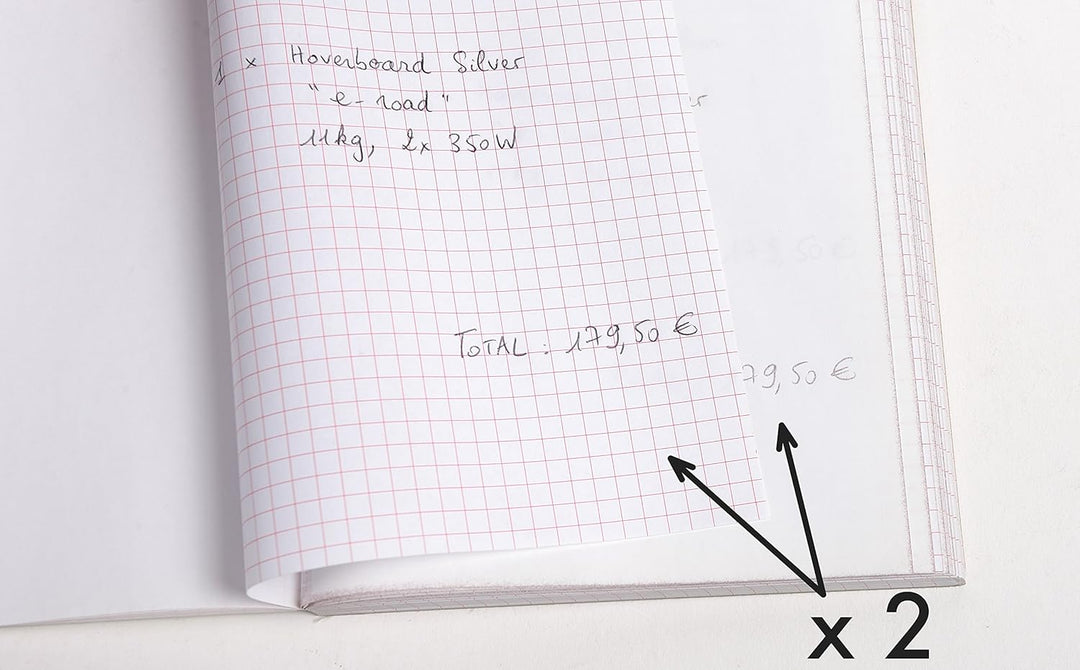 1 x Hoverboard Silver
" e-road "
11kg, 2x 350W
TOTAL : 179,50 €
79,50 €
x 2